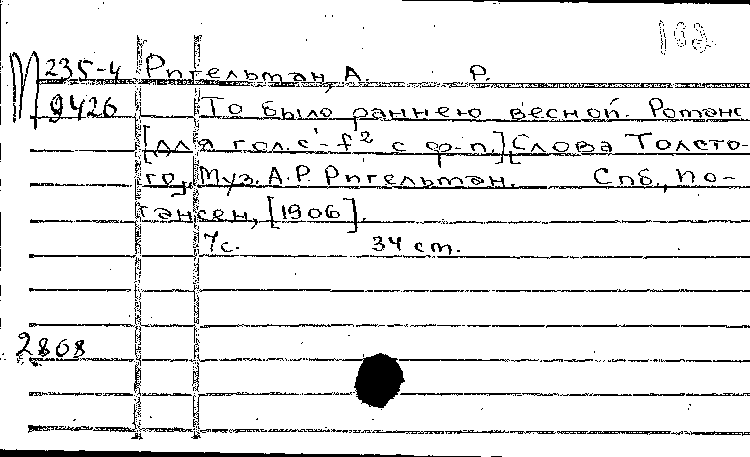 102
М 235-4 Ригельман, А. Р.
9426 То было раннею весной. Романс
[для гол. c¹-f² с ф-п.] Слова Толсто-
го, Муз. А. Р. Ригельман. Спб., Ио-
гансен, [1906].
7с. 34 cm.
2808